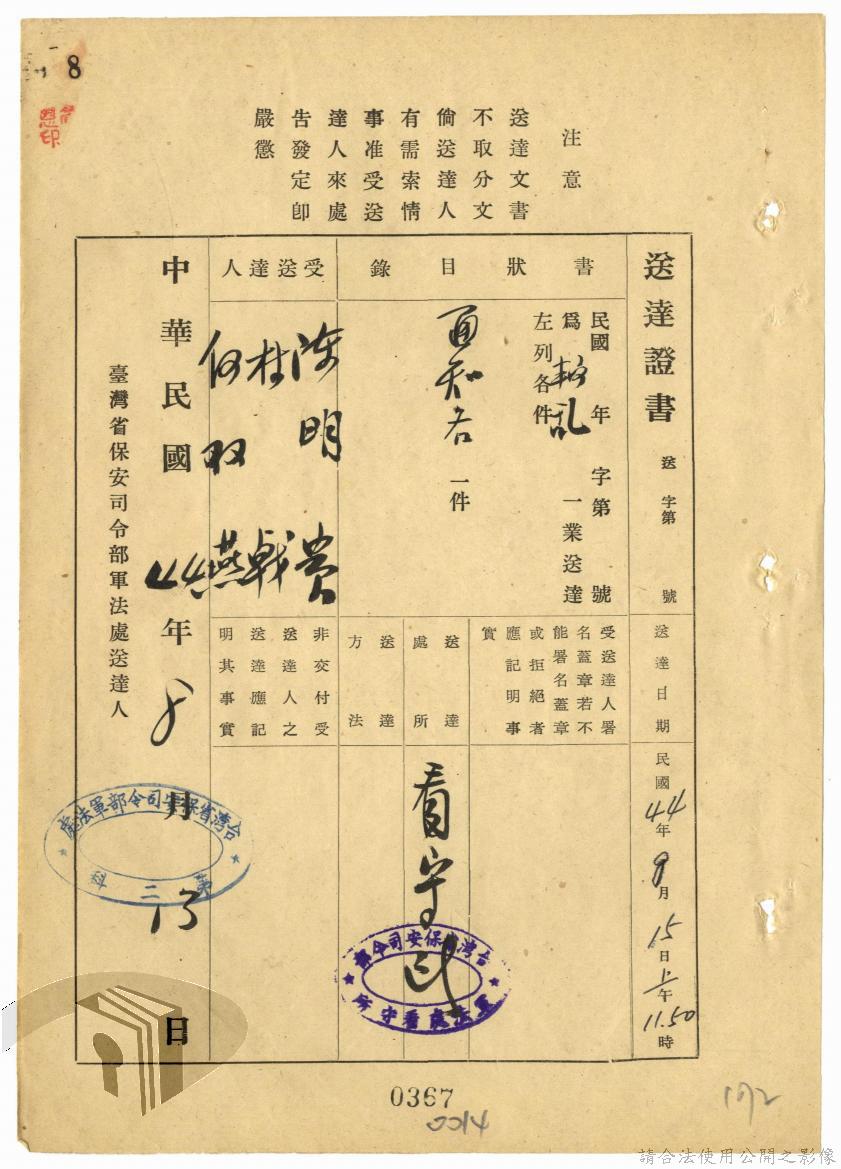 8
注意
送達文書
不取分文
倘送達人
有需索情
事准受送
達人來處
告發定卽
嚴懲
送達證書
送 字第 號
送達日期
民國44年9月15日上午11.50時
書狀目錄
民國 年 字第 號
爲 叛乱 一業送達
左列各件
一件
受送達人署
名蓋章若不
能署名蓋章
或拒絕者
應記明事
實
送達處所
看守
送達方法
受送達人
陳明貴
杜
何 燕
非交付受
送達人之
送達應記
明其事實
中華民國44年8月13日
臺灣省保安司令部軍法處送達人
台灣省保安司令部軍法處
第二科
台灣省保安司令部
軍法處看守所
0367
0014
請合法使用公開之影像